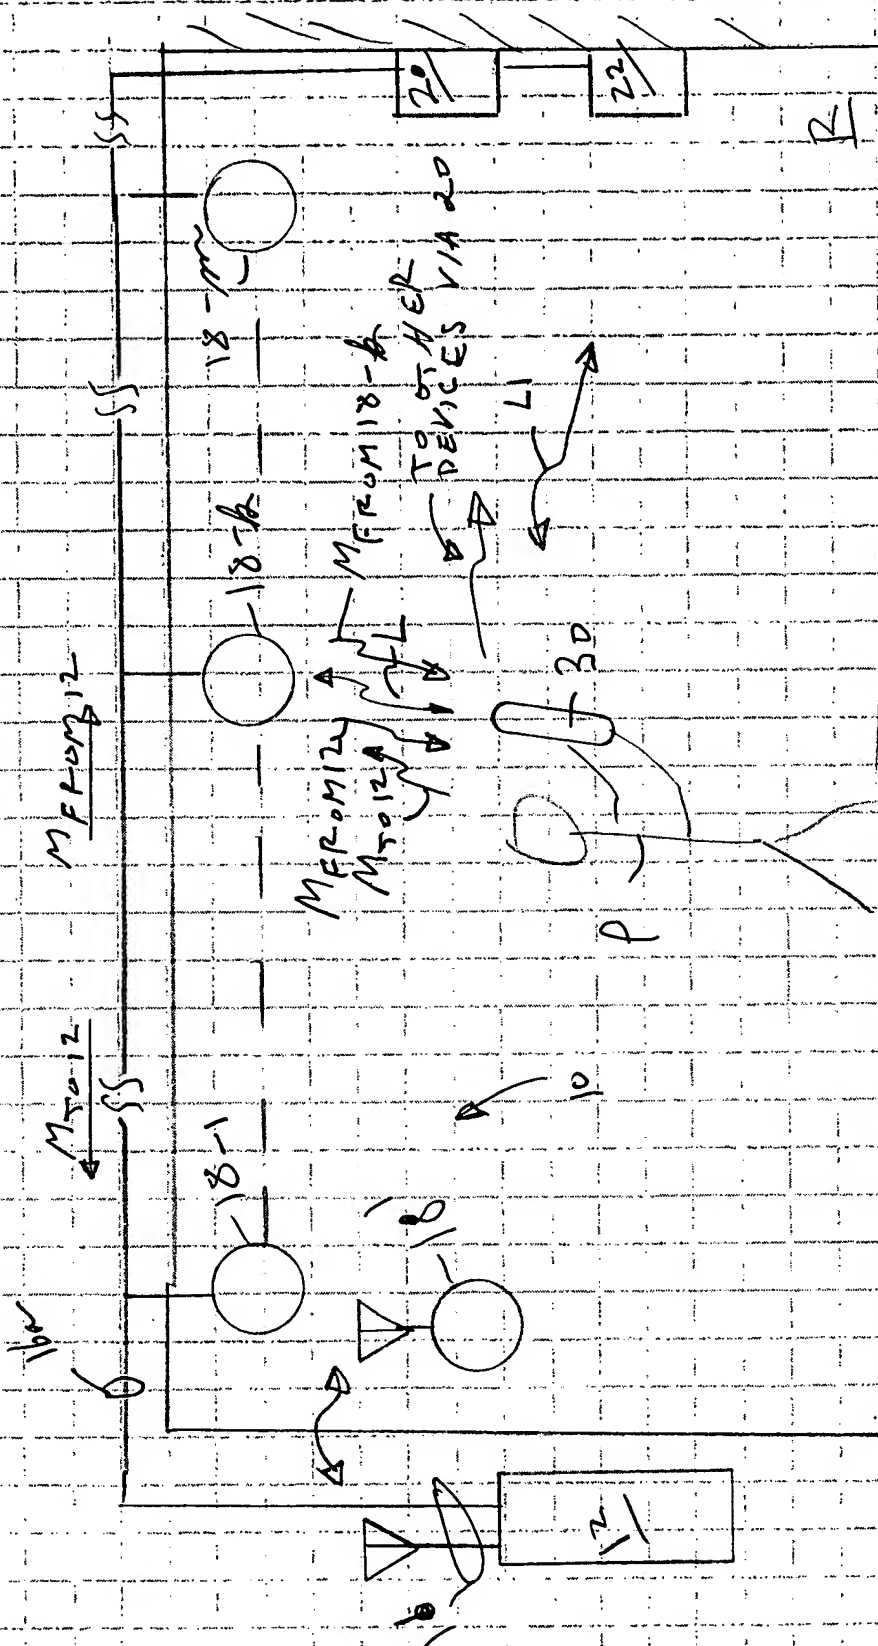 M TO 12
M FROM 12
18-1
18-k
18-m
20
22
M FROM 12
M TO 12
L
M FROM 18-k
TO OTHER
DEVICES VIA 20
L1
18
10
30
P
R
12